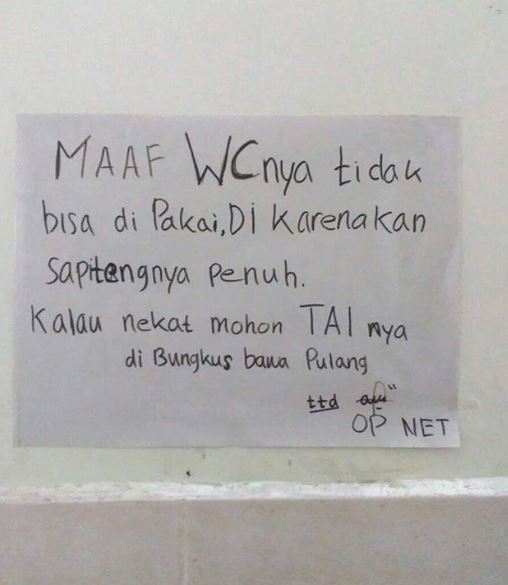 MAAF WCnya tidak
bisa di Pakai, Di Karenakan
Sapitengnya Penuh.
Kalau nekat mohon TAI nya
di Bungkus bawa Pulang
ttd
OP NET